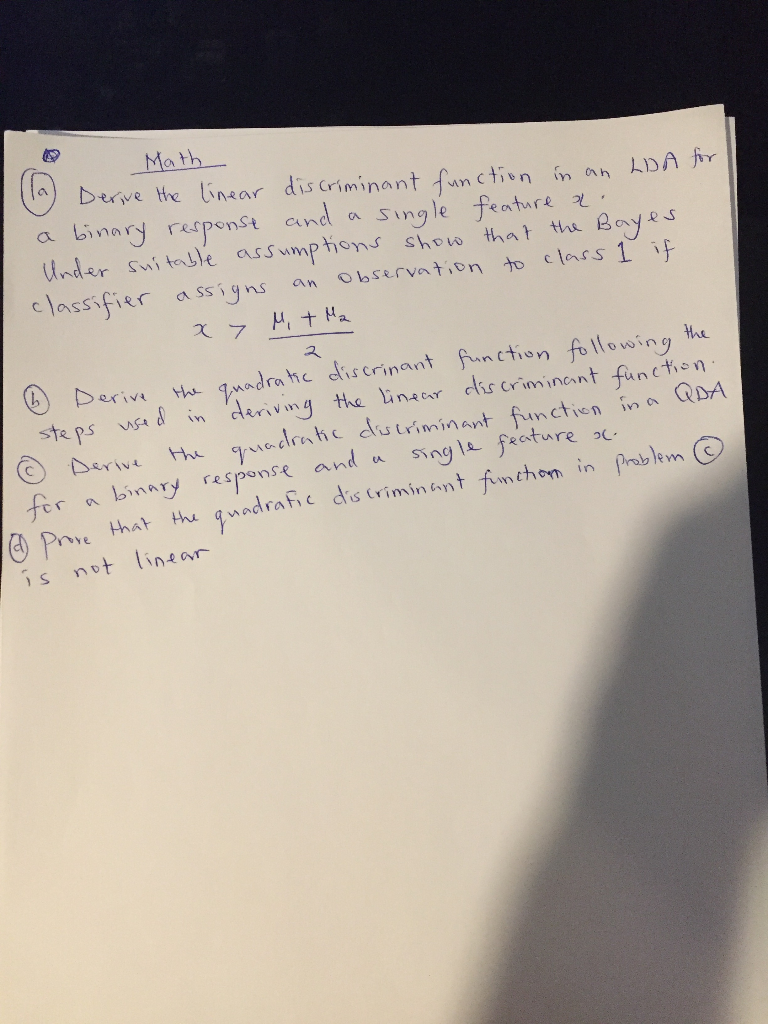 Math
1a Derive the linear discriminant function in an LDA for
a binary response and a single feature x.
Under suitable assumptions show that the Bayes
classifier assigns an observation to class 1 if
x > μ₁ + μ₂
2
b Derive the quadratic discrinant function following the
steps used in deriving the linear discriminant function.
c Derive the quadratic discriminant function in a QDA
for a binary response and a single feature x.
d Prove that the quadratic discriminant function in problem c
is not linear